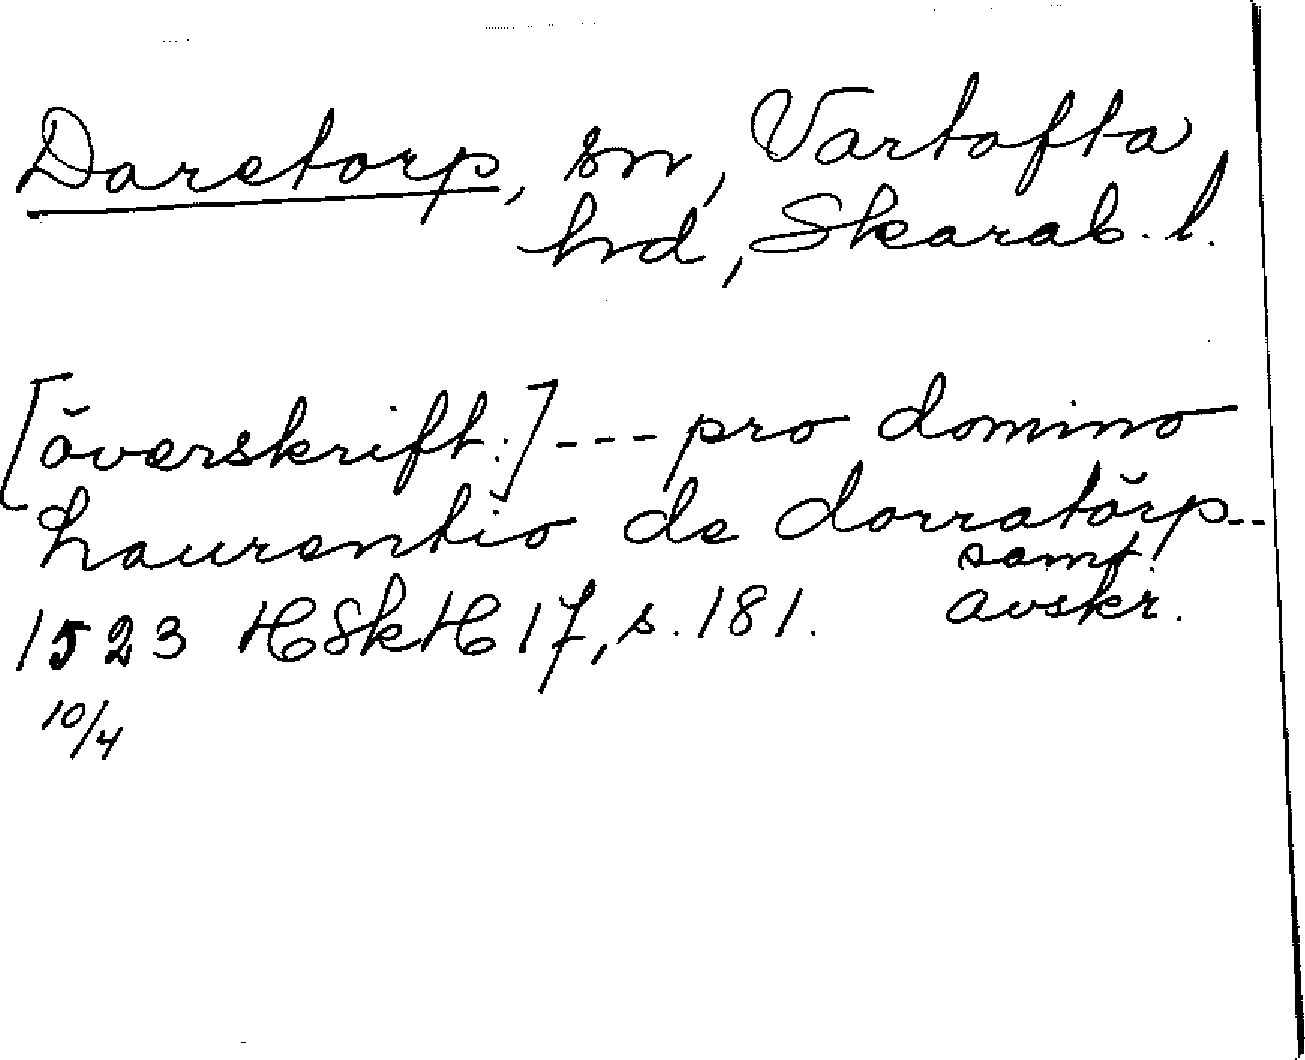 Daretorp, sn, Vartofta
hd, Skarab. l.
[överskrift:] --- pro domino
Laurentio de dorratörp--
samt.
avskr.
1523 HSkH 17, s. 181.
10/4